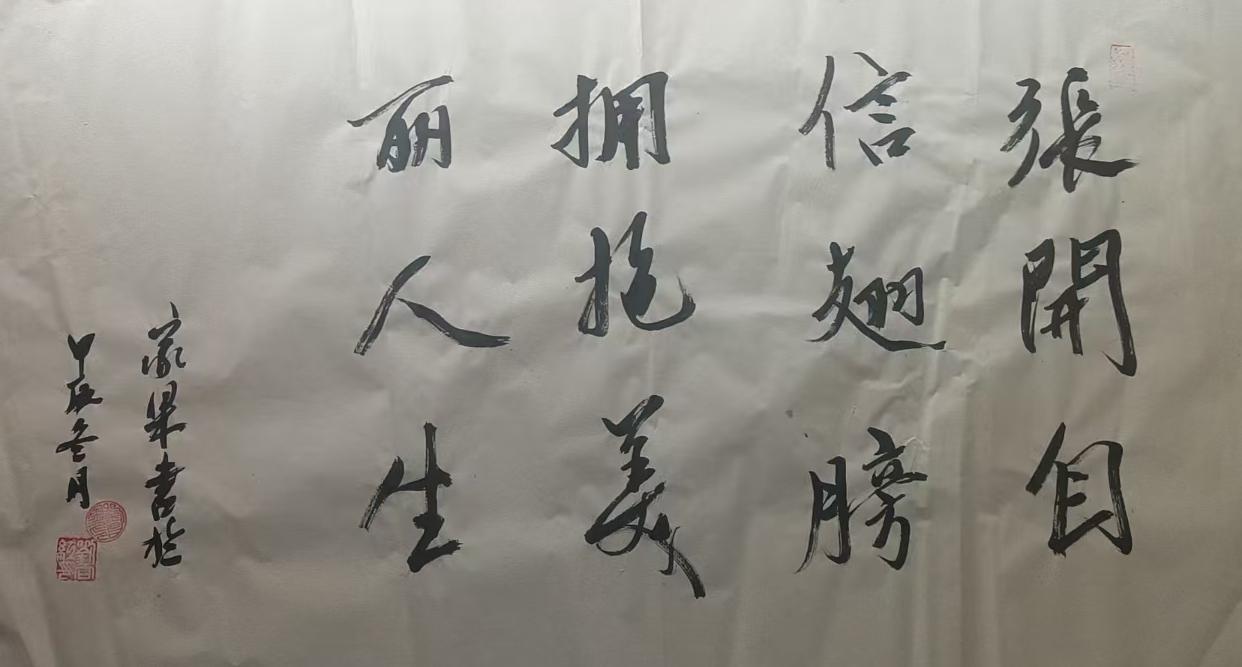 張開自
信翅膀
拥抱美
丽人生
家果书於
甲辰冬月